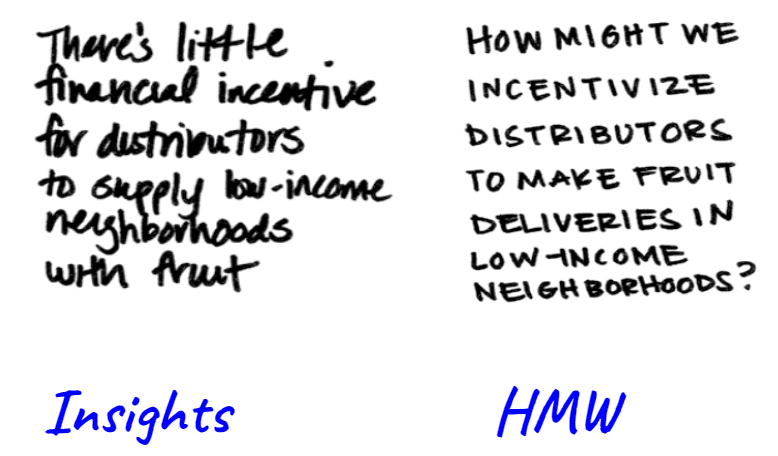 There's little
financial incentive
for distributors
to supply low-income
neighborhoods
with fruit
Insights
HOW MIGHT WE
INCENTIVIZE
DISTRIBUTORS
TO MAKE FRUIT
DELIVERIES IN
LOW-INCOME
NEIGHBORHOODS?
HMW